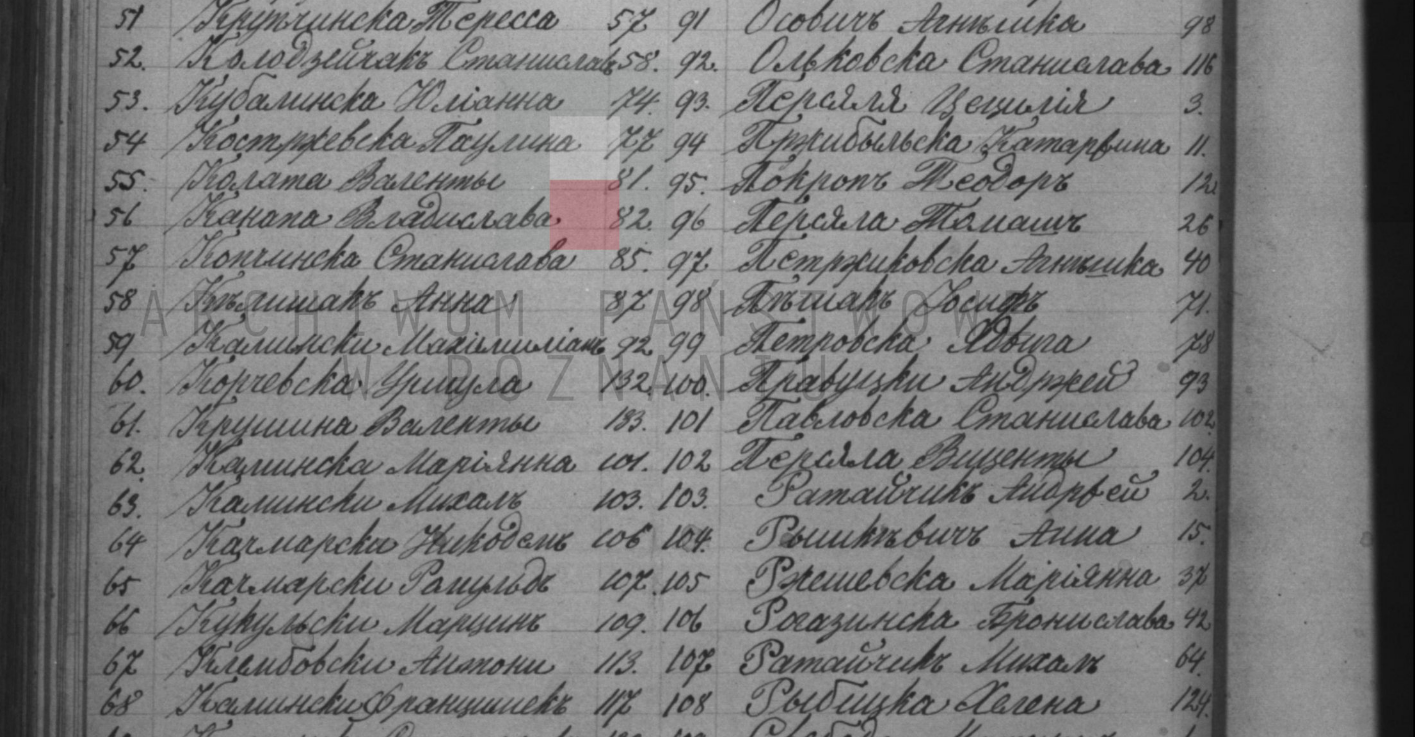 51 Крупчинска Тересса 57 91 Осовичъ Агнѣшка 98
52. Колодзейчакъ Станиславъ 58. 92. Ольковска Станислава 116
53. Кубалинска Юліанна 74. 93. Персяля Цецилія 3.
54 Костржевска Паулина 77 94 Пржибыльска Катаржина 11.
55. Колата Валенты 81. 95. Покропъ Теодоръ 12.
56 Канапа Владислава 82. 96 Персяла Томашъ 26
57 Копчинска Станислава 85. 97. Петржиковска Агнѣшка 40
58 Анна 87 98 Пѣшакъ Іосифъ 71.
ARCHIWUM PAŃSTWOWE
59 Калински Махіміліанъ 92 99 Петровска Ядвига 78
W POZNANIU
60. Корчевска Уршуля 132. 100. Андржей 93
61. Крушина Валенты 133. 101 Павловска Станислава 102
62. Калинска Маріянна 101. 102 Персяла Виценты 104.
63. Калински Михалъ 103. 103. Ратайчикъ Андржей 2.
64 Качмарски Никодемъ 106 104. Рышкѣвичъ Анна 15.
65 Качмарски Ромульдъ 107. 105 Ржешевска Маріянна 37
66 Кукульски Марцинъ 109. 106 Рогазинска Брониславa 42
67 Клембовски Антони 113. 107 Ратайчикъ Михалъ 64.
68 Калински Францишекъ 117 108 Рыбицка Хелена 124.